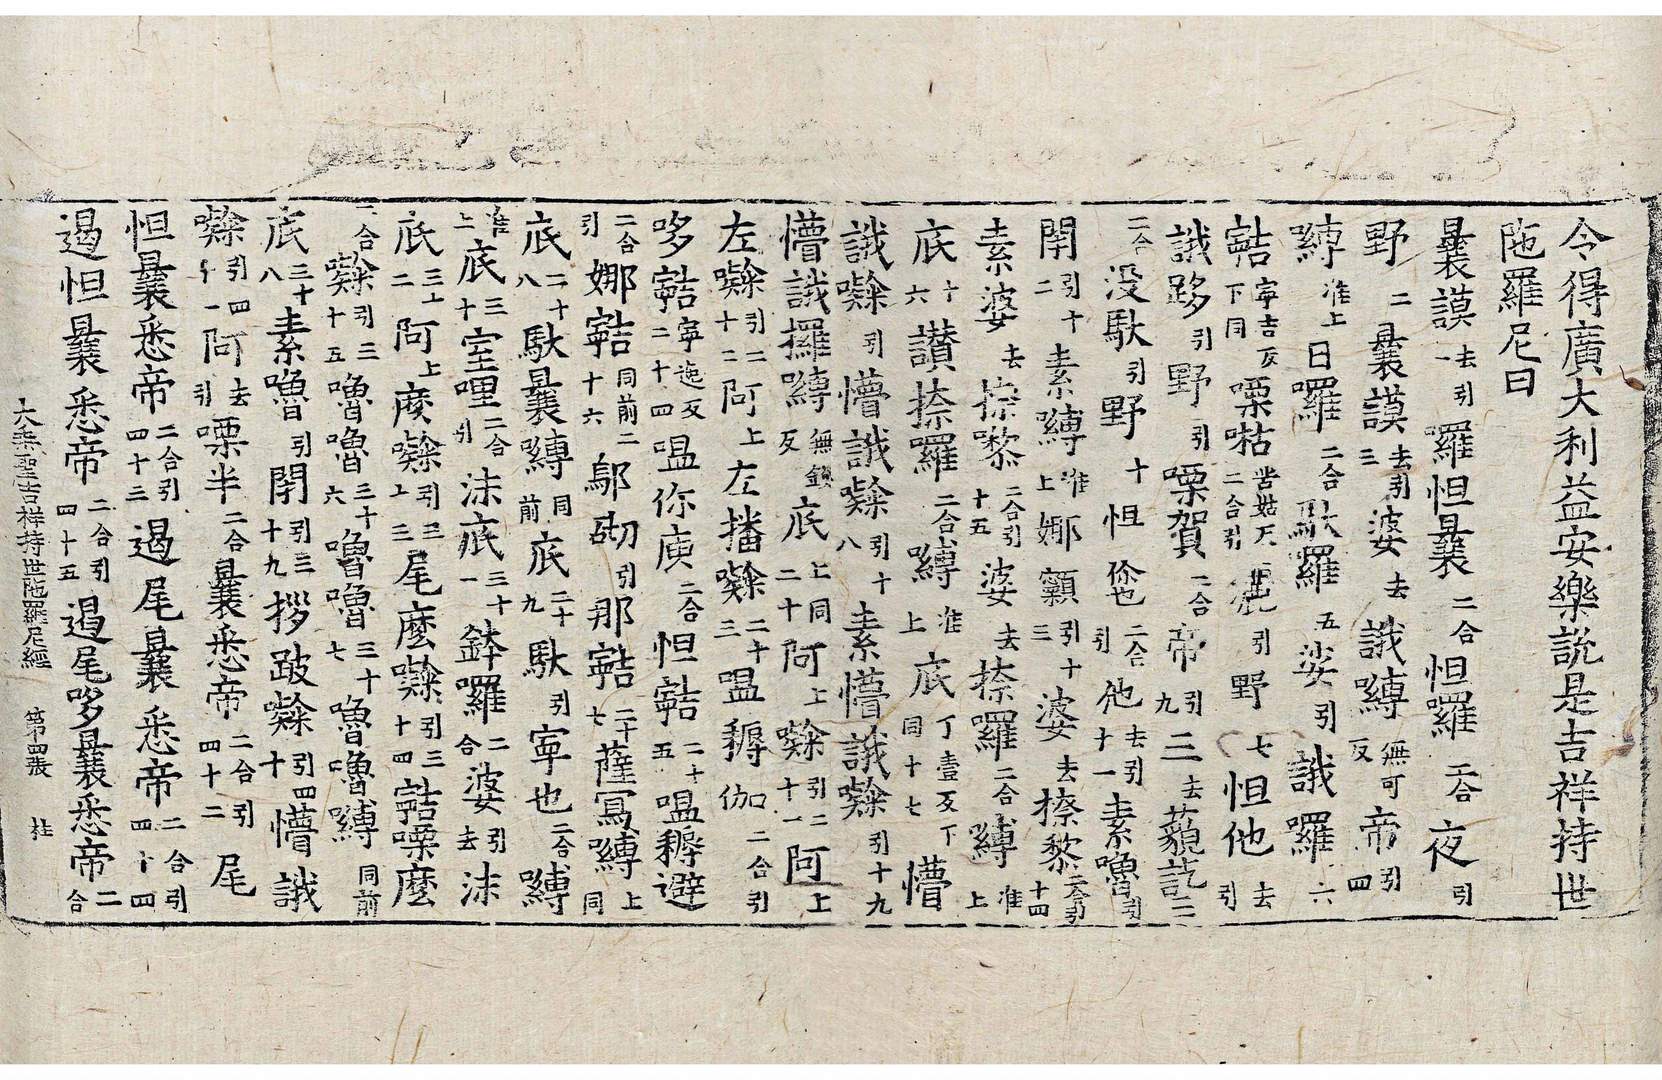 令得廣大利益安樂說是吉祥持世
陁羅尼曰
曩謨去引一羅怛曩二合怛羅二合夜引
野二曩謨去引三婆去誐嚩無可反帝引四
嚩准上日羅二合馱羅五娑引誐羅六
䛿寧吉反下同㗚枯苦姑反二合引灑引野七怛他去引
誐跢引野引㗚賀二合帝引九三去藐訖二
合没馱引野十怛儞也二合引他去引十一素嚕引
閇引十二素嚩准上娜顙引十三婆去捺黎二合引十四
素婆去捺㘑二合引十五婆去捺羅二合嚩准上
底十六讃捺羅二合嚩准上底丁壹反下同十七懵
誐㘑引懵誐㘑引十八素懵誐㘑引十九
懵誐攞嚩無鉢反底上同二十阿上㘑引二十一阿上
左㘑引二十二阿上左播㘑二十三嗢耨伽二合引
哆䛿寧逸反二十四嗢你庾二合怛䛿二十五嗢耨避
二合引娜䛿同前二十六鄔砌引那䛿二十七薩寫嚩上同
底二十八馱曩嚩同前底二十九馱引寧也二合嚩
准上底三十室哩二合引沫底三十一鉢羅二合婆引去沫
底三十二阿上麽㘑引三十三尾麽㘑引三十四䛿㗚麽
二合㘑引三十五嚕嚕三十六嚕嚕三十七嚕嚕嚩同前
底三十八素嚕引閇引三十九拶跛㘑引四十懵誐
㘑引四十一阿去引㗚半二合曩悉帝二合引四十二尾
怛曩悉帝二合引四十三遏尾曩悉帝二合引四十四
遏怛曩悉帝二合引四十五遏尾哆曩悉帝二合
大乘聖吉祥持世陁羅尼經 第四張 桂